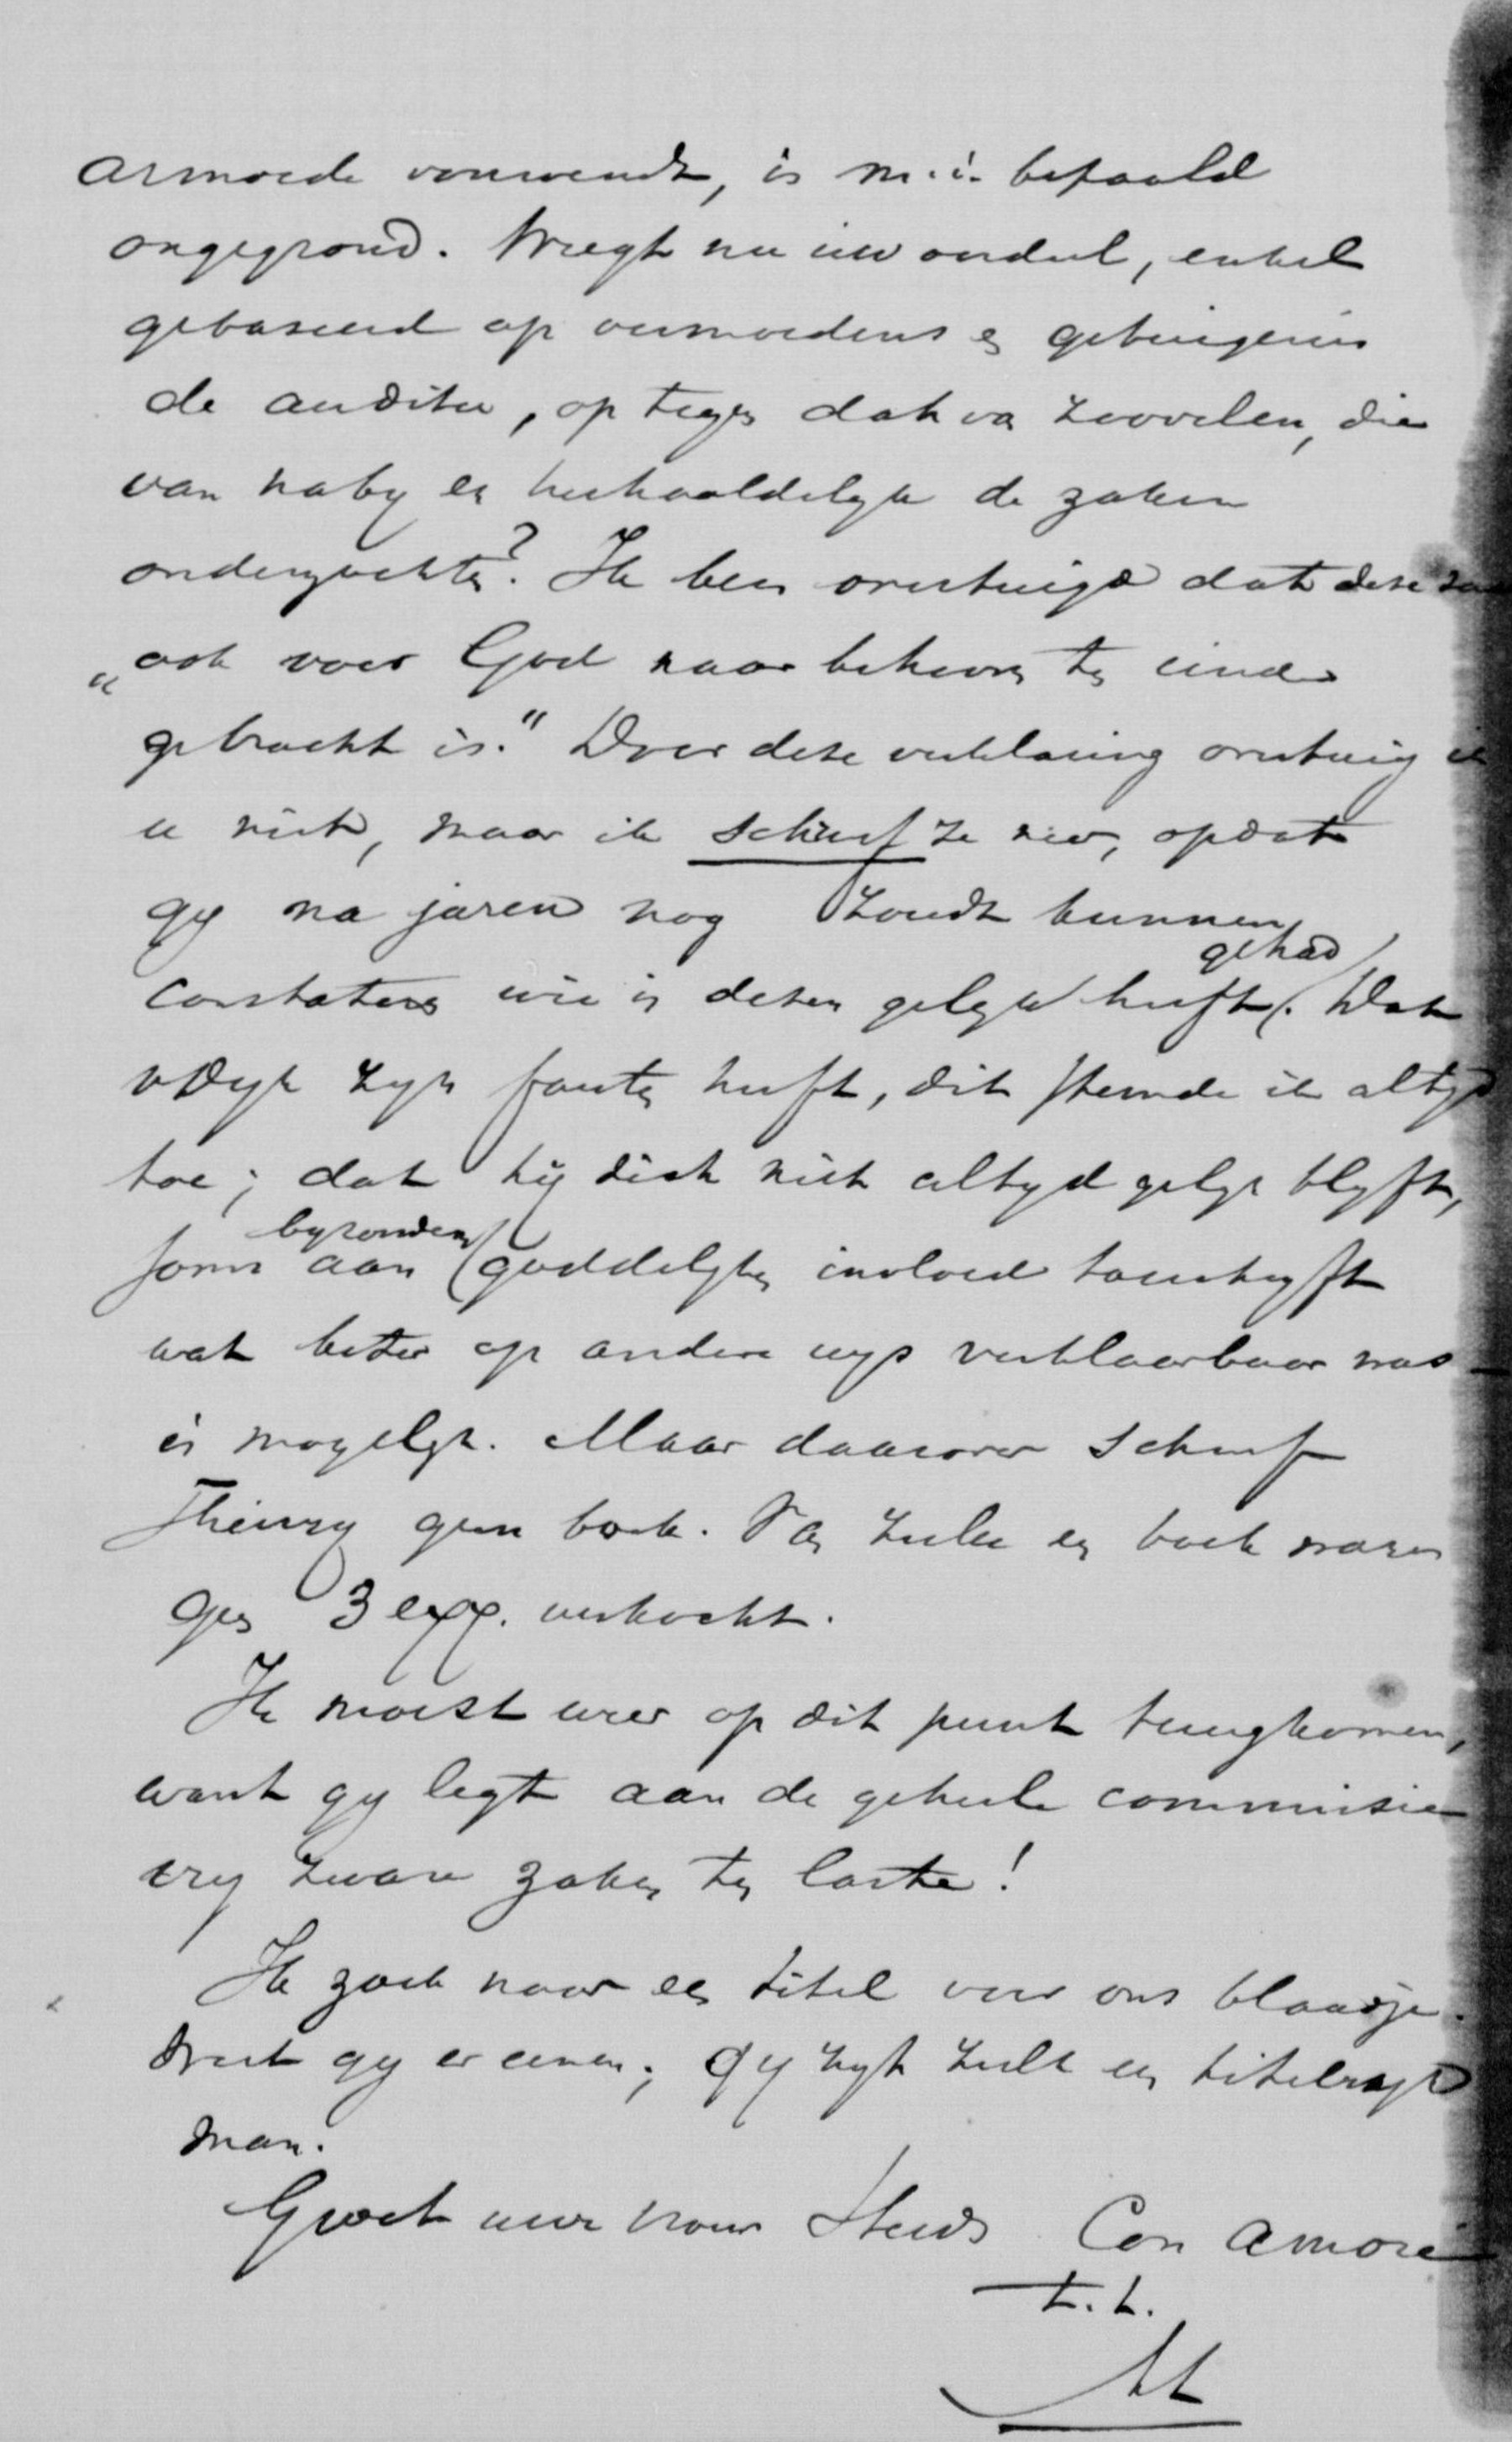 armoede voorwendt, is m.i. bepaald
ongegrond. Weegt nu uw oordeel, enkel
gebaseerd op vermoedens en getuigenis
de auditu, op tegen dat van zoovelen, die
van naby en herhaaldelyk de zaken
onderzochten? Ik ben overtuigd dat deze
„ook voor God naar behooren ten einde
gebracht is." Door deze verklaring overtuig ik
u niet, maar ik schreef ze neer, opdat
gy na jaren nog zoudt kunnen
constateren wie in dezen gelyk heeft gehad. Dat
v Dyk zyn fouten heeft, dit stemde ik altyd
toe; dat hij zich niet altyd gelyk blyft,
soms aan byzonderen goddelyken invloed toeschryft
wat beter op andere wys verklaarbaar was –
is mogelyk. Maar daarover schreef
Thierry geen boek. Van zulk een boek waren
geen 3 exx. verkocht.
Ik moest weer op dit punt terugkomen,
want gy legt aan de geheele commissie
vry zware zaken ten laste!
Ik zoek naar een titel voor ons blaadje.
Weet gy er eenen; gy zyt zulk een titelryk
man.
Groet uwe vrouw Steeds Con amore
t.t.